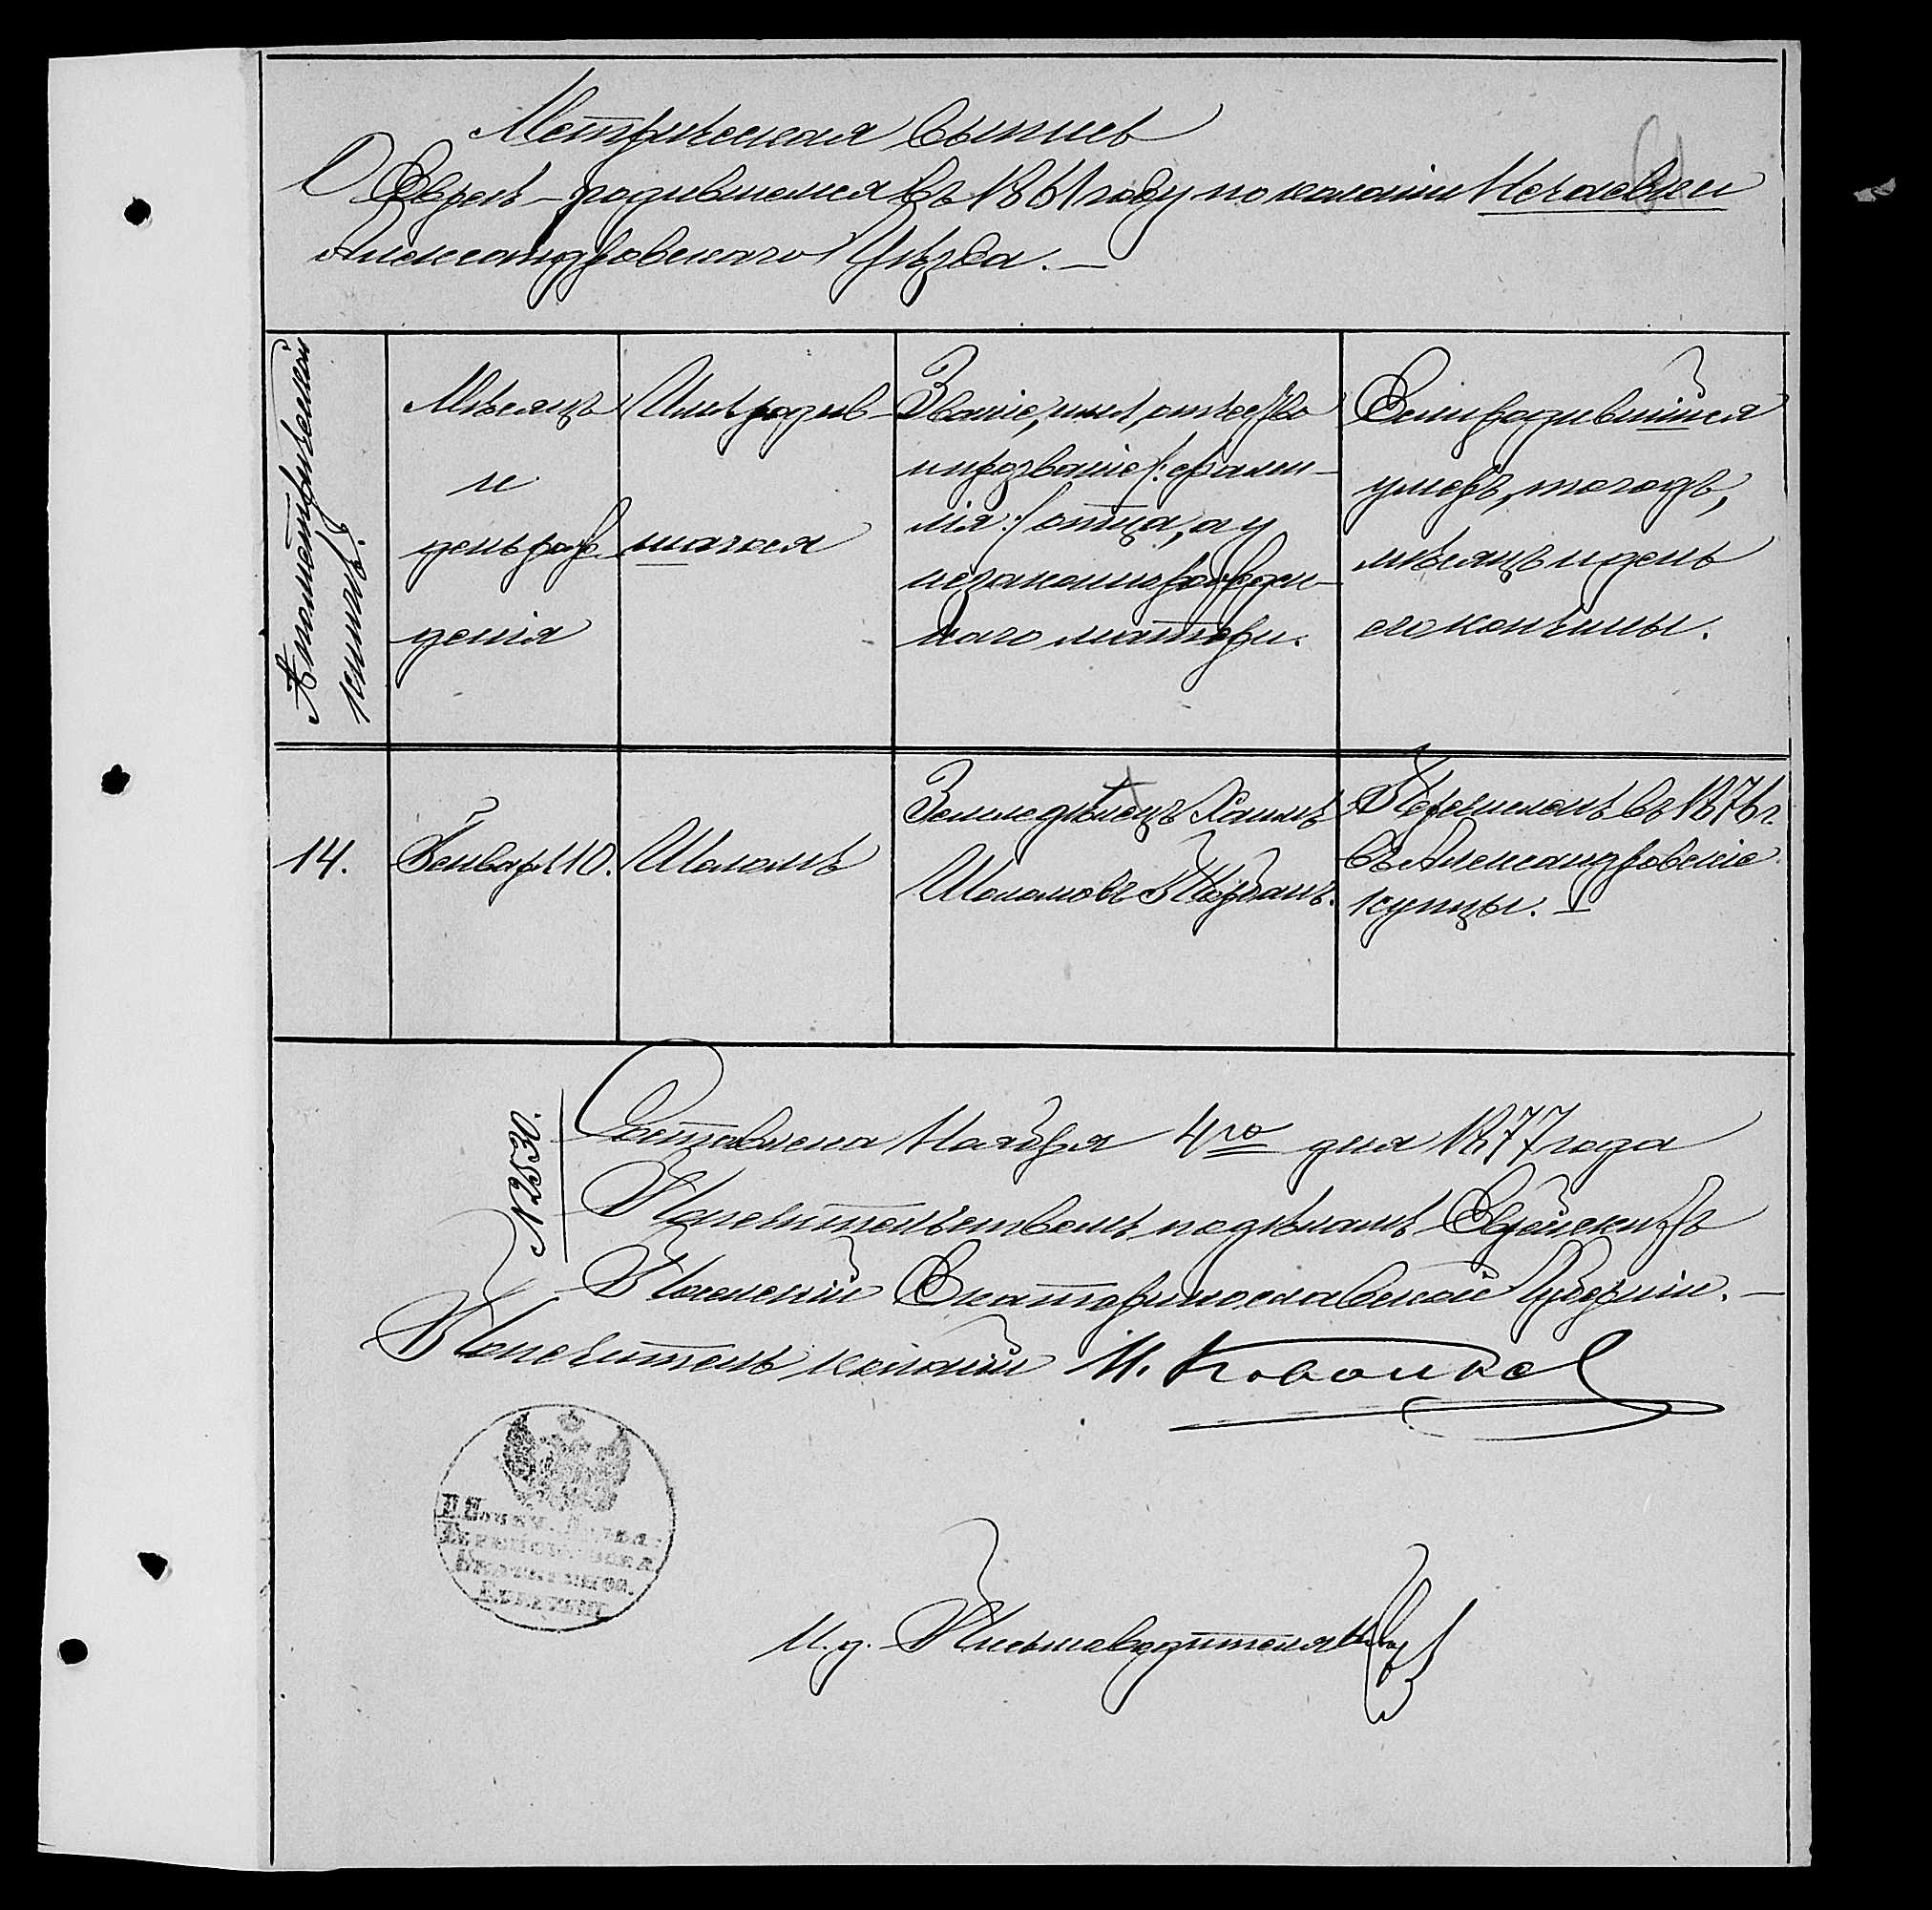 Метрическая выпись
О Еврее – родившемся въ 1861 году по колоніи Нечаевки
Александровскаго Уѣзда. –
№ по метрической
книгѣ.
Мѣсяцъ
и
день рож-
денія
Имя родив-
шагося
Званіе, имя, отчество
и прозваніе /: фами-
лія :/ отца, а у
незаконнорожден-
наго матери.
Если родившійся
умеръ, то годъ,
мѣсяцъ и день
его кончины.
14.
Января 10.
Шоломъ
Земледѣлецъ Хаимъ
Шоломовъ
Перечисленъ въ 1876 г.
въ Александровскіе
купцы. –
№ 2530.
Составлена Ноября 4го дня 1877 года
Попечительствомъ по дѣламъ Еврейскихъ
Поселеній Екатеринославской Губерніи. –
Попечитель колоній И.
И. д. Письмоводителя